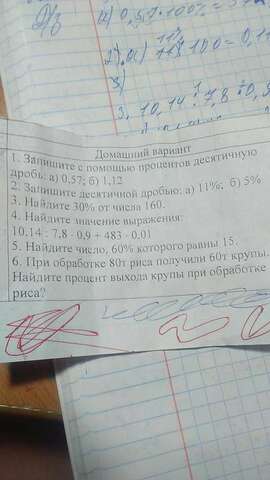 Д/з
а) 0,57·100% =
2). а) 11% : 100 = 0,1
3)
3. 10,14 : 7,8
Домашний вариант
1. Запишите с помощью процентов десятичную
дробь: а) 0,57; б) 1,12
2. Запишите десятичной дробью: а) 11%; б) 5%
3. Найдите 30% от числа 160.
4. Найдите значение выражения:
10.14 : 7,8 · 0,9 + 483 · 0.01
5. Найдите число, 60% которого равны 15.
6. При обработке 80т риса получили 60т крупы.
Найдите процент выхода крупы при обработке
риса?